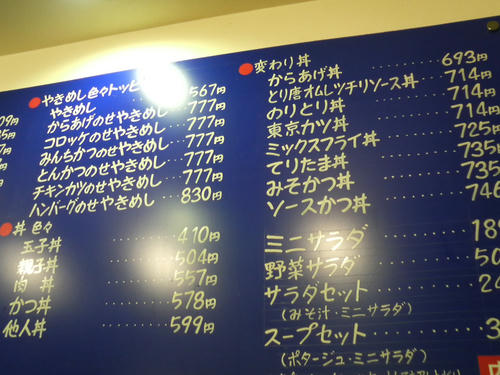 やきめし色々トッピ
やきめし・・・567円
からあげのせやきめし・・・777円
コロッケのせやきめし・・・777円
みんちかつのせやきめし・・・777円
とんかつのせやきめし・・・777円
チキンカツのせやきめし・・・777円
ハンバーグのせやきめし・・・830円
丼色々
玉子丼・・・410円
親子丼・・・504円
肉丼・・・557円
かつ丼・・・578円
他人丼・・・599円
変わり丼
からあげ丼・・・693円
とり唐オムレツチリソース丼・・・714円
のりとり丼・・・714円
東京カツ丼・・・714円
ミックスフライ丼・・・725円
てりたま丼・・・735円
みそかつ丼・・・735
ソースかつ丼・・・746
ミニサラダ・・・189
野菜サラダ・・・50
サラダセット・・・24
(みそ汁・ミニサラダ)
スープセット・・・3
(ポタージュ・ミニサラダ)